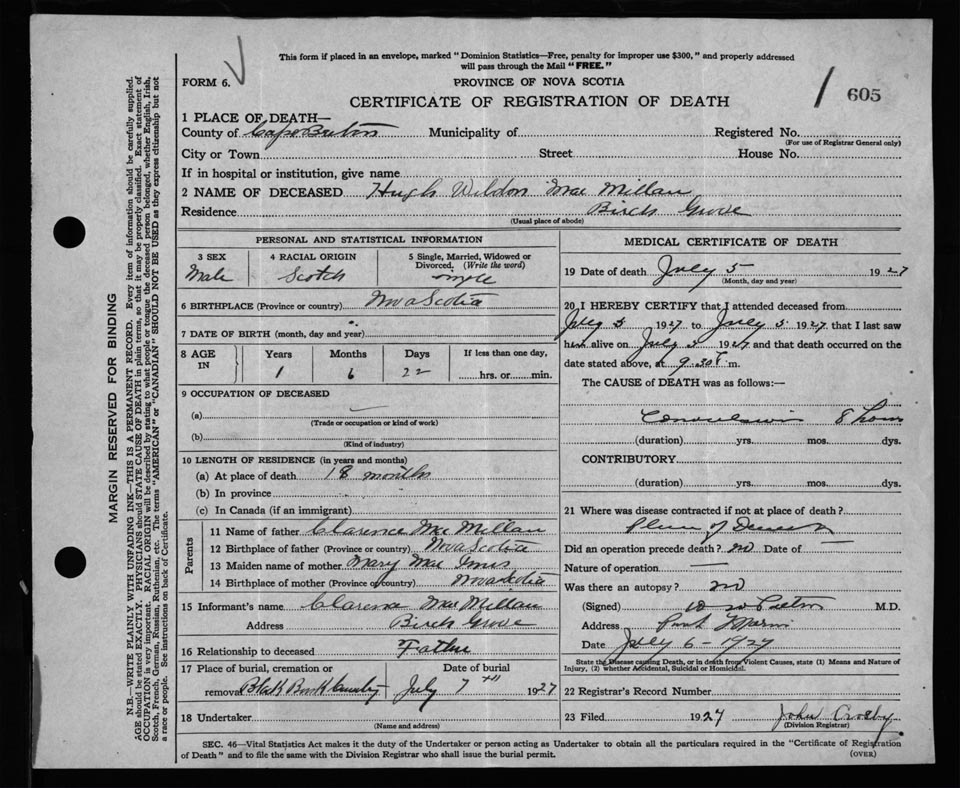 This form if placed in an envelope, marked "Dominion Statistics—Free, penalty for improper use $300," and properly addressed
will pass through the Mail "FREE."
FORM 6.
PROVINCE OF NOVA SCOTIA
CERTIFICATE OF REGISTRATION OF DEATH
605
1 PLACE OF DEATH—
County of Cape Breton Municipality of Registered No.
(For use of Registrar General only)
City or Town Street House No.
If in hospital or institution, give name
2 NAME OF DECEASED Hugh Weldon Mac Millan
Residence Birch Grove
(Usual place of abode)
PERSONAL AND STATISTICAL INFORMATION
3 SEX 4 RACIAL ORIGIN 5 Single, Married, Widowed or
Divorced. (Write the word)
Male Scotch single
6 BIRTHPLACE (Province or country) Nova Scotia
7 DATE OF BIRTH (month, day and year)
8 AGE IN Years Months Days If less than one day,
1 6 22 hrs. or min.
9 OCCUPATION OF DECEASED
(a)
(Trade or occupation or kind of work)
(b)
(Kind of industry)
10 LENGTH OF RESIDENCE (in years and months)
(a) At place of death 18 months
(b) In province
(c) In Canada (if an immigrant)
Parents
11 Name of father Clarence Mac Millan
12 Birthplace of father (Province or country) Nova Scotia
13 Maiden name of mother Mary Mac Innis
14 Birthplace of mother (Province or country) Nova Scotia
15 Informant's name Clarence Mac Millan
Address Birch Grove
16 Relationship to deceased Father
17 Place of burial, cremation or Date of burial
removal July 7th 1927
18 Undertaker
(Name and address)
MEDICAL CERTIFICATE OF DEATH
19 Date of death July 5 1927
(Month, day and year)
20 I HEREBY CERTIFY that I attended deceased from
July 5 1927 to July 5 1927 that I last saw
him alive on July 5 1927 and that death occurred on the
date stated above, at 9.30 P m.
The CAUSE of DEATH was as follows:—
Convulsion 8 hours
(duration) yrs. mos. dys.
CONTRIBUTORY
(duration) yrs. mos. dys.
21 Where was disease contracted if not at place of death?
Place of
Did an operation precede death? no Date of —
Nature of operation —
Was there an autopsy? no
(Signed) M.D.
Address Port Morien
Date July 6 - 1927
State the Disease causing Death, or in death from Violent Causes, state (1) Means and Nature of
Injury, (2) whether Accidental, Suicidal or Homicidal.
22 Registrar's Record Number
23 Filed 1927 John Crosby
(Division Registrar)
SEC. 46—Vital Statistics Act makes it the duty of the Undertaker or person acting as Undertaker to obtain all the particulars required in the "Certificate of Registration
of Death" and to file the same with the Division Registrar who shall issue the burial permit.
(OVER)
MARGIN RESERVED FOR BINDING
N.B.—WRITE PLAINLY WITH UNFADING INK—THIS IS A PERMANENT RECORD. Every item of information should be carefully supplied.
AGE should be stated EXACTLY. PHYSICIANS should STATE CAUSE OF DEATH in plain terms, so that it may be properly classified. Exact statement of
OCCUPATION is very important. RACIAL ORIGIN will be described by stating to what people or tongue the deceased person belonged, whether English, Irish,
Scotch, French, German, Russian, Ruthenian, etc. The terms "AMERICAN" or "CANADIAN" SHOULD NOT BE USED as they express citizenship but not
a race or people. See instructions on back of Certificate.